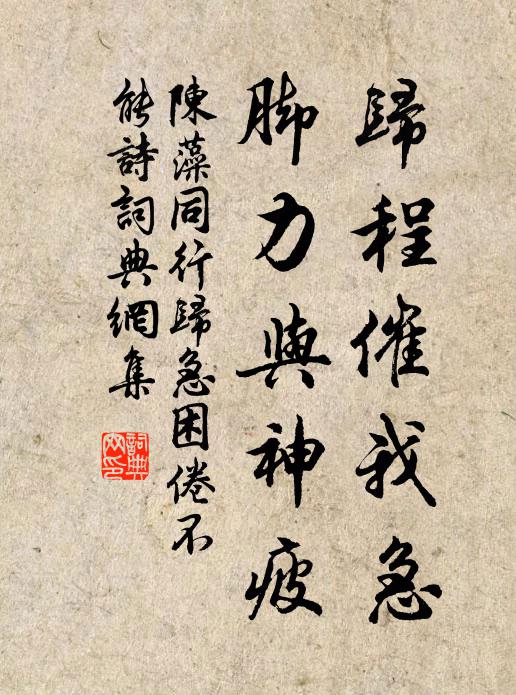 歸程催我急
脚力與神疲
陳藻同行歸急困倦不
能詩詞典網集
詞典
网印